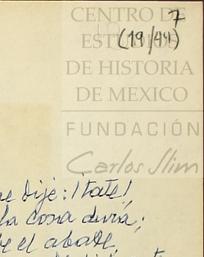 7
CENTRO DE
ESTUDIOS
(19/44)
DE HISTORIA
DE MEXICO
FUNDACIÓN
Carlos Slim
me dije: ¡tate!
la cosa
e el abate,